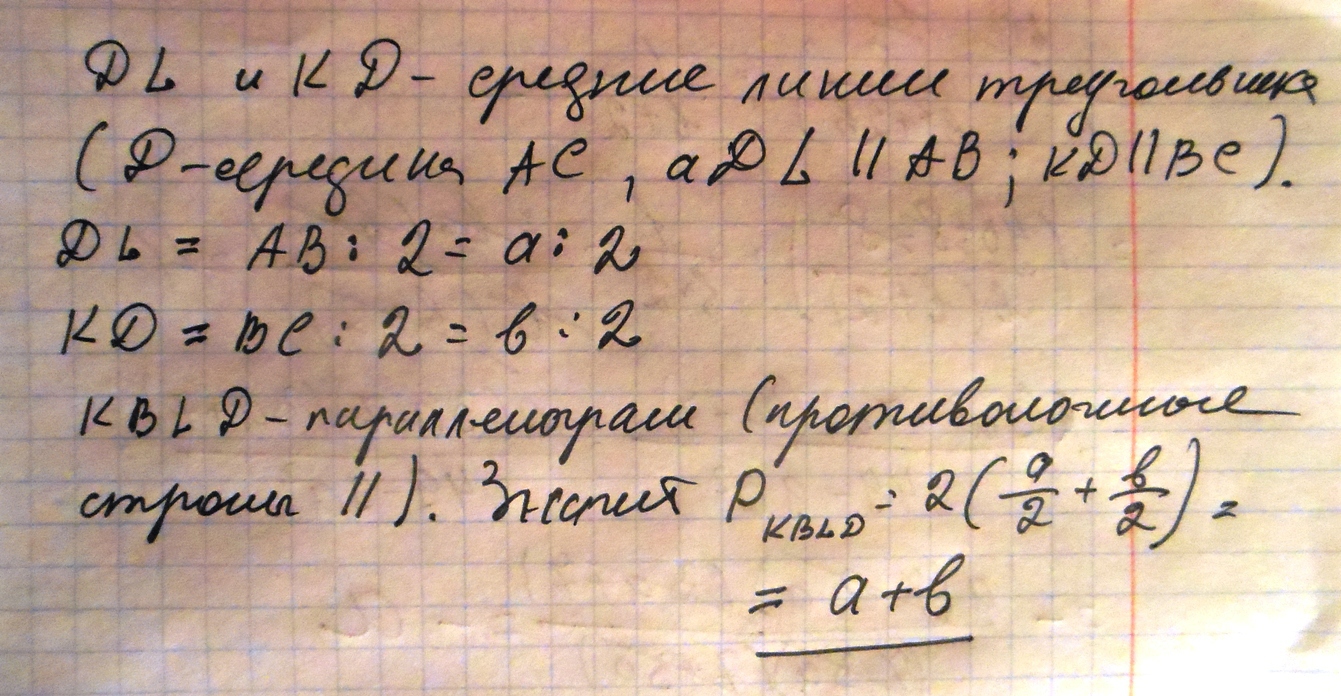 DL и KD - средние линии треугольника
(D - середина AC, а DL || AB; KD || BC).
DL = AB : 2 = a : 2
KD = BC : 2 = в : 2
KBLD - параллелограм (противоположные
стороны ||). Значит P_KBLD = 2(a/2 + в/2) =
= a + в